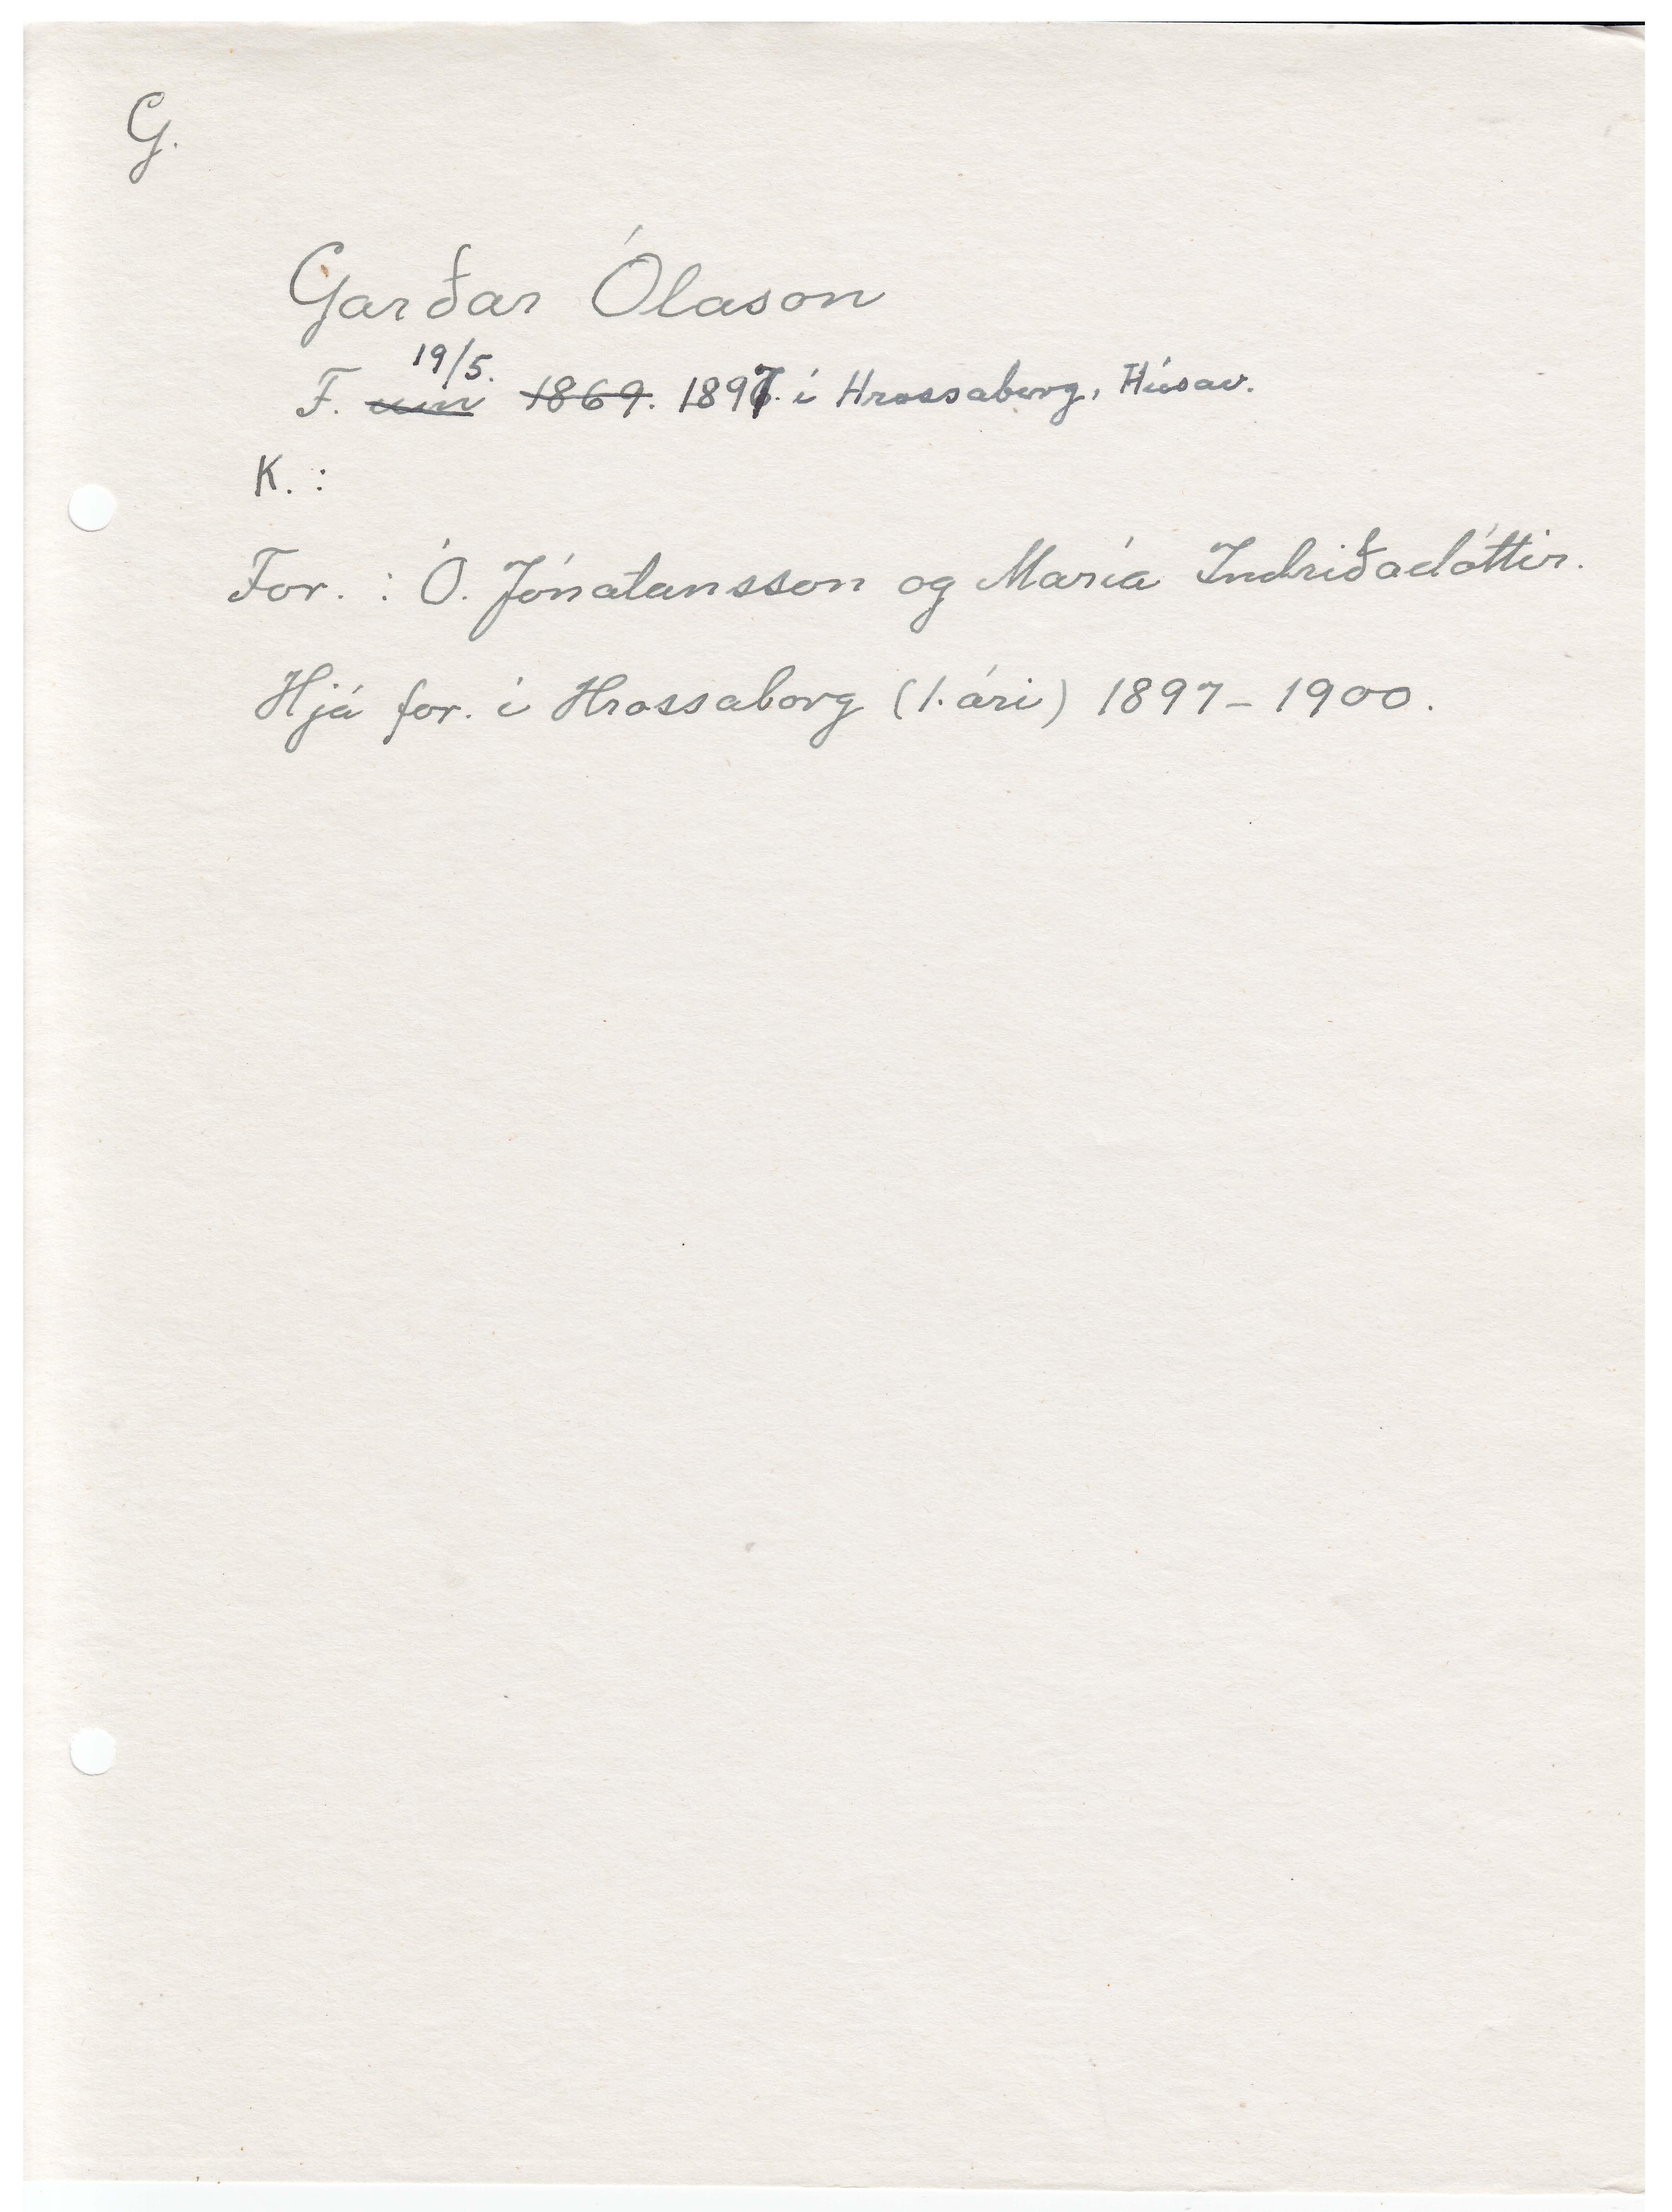 G.
Garðar Ólason
19/5.
F. um 1869. 1897. í Hrossaborg, Húsav.
K. :
For. : Ó. Jónatansson og María Indriðadóttir.
Hjá for. í Hrossaborg (1. ári) 1897 - 1900.